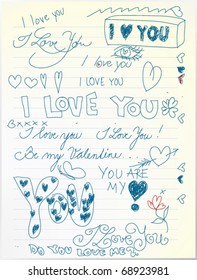 I love you
I ♥ YOU
I Love You
I love you
I LOVE YOU
I LOVE YOU
Bxxxx
I love you I Love You!
Be my Valentine...
YOU ARE
MY
You
I Love You
DO YOU LOVE ME?
shutterstock.com · 68923981